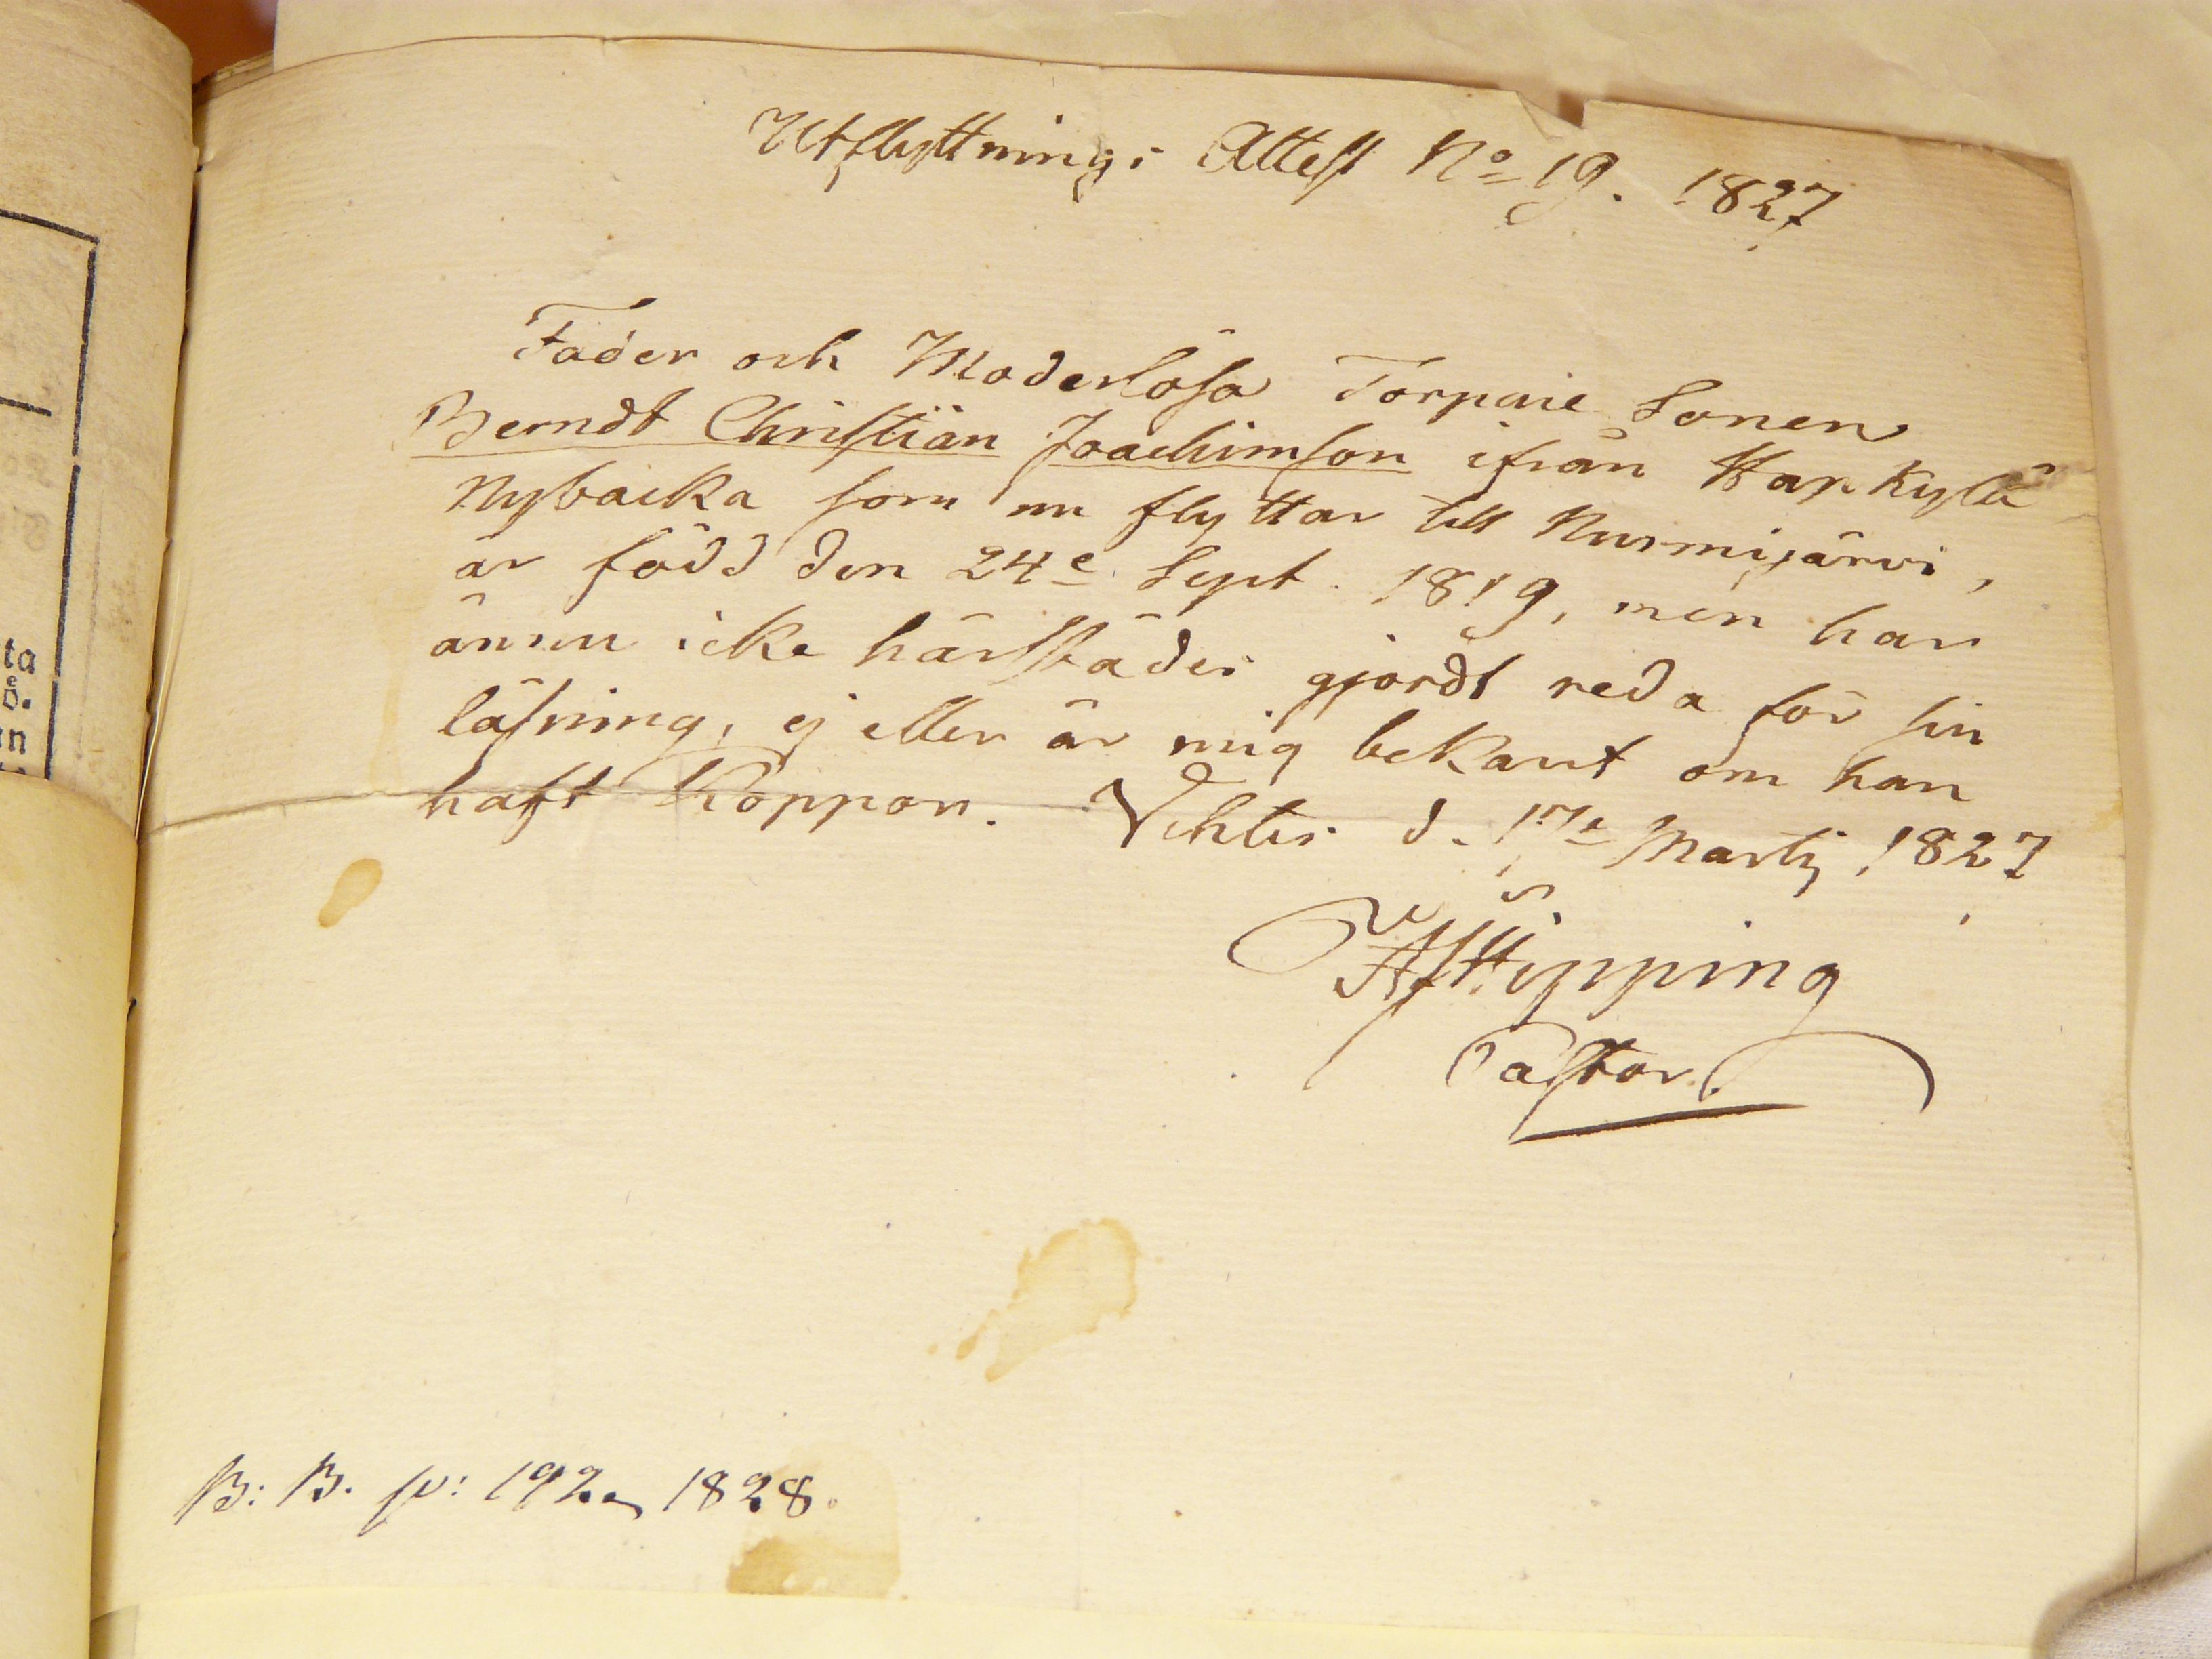 Utflyttnings Attest No 19. 1827
Fader och Moderlösa Torpare Sonen
Berndt Christian Joachimson ifrån Härkylä
Nybacka som nu flyttar till Nurmijärvi,
är född den 24e Sept. 1819, men har
ännu icke härstädes gjordt reda för sin
läsning, ej eller är mig bekant om han
haft Koppor. Vichtis d. 17e Martij 1827
Hipping
Pastor.
B: B. p: 192 1828.
ta
in